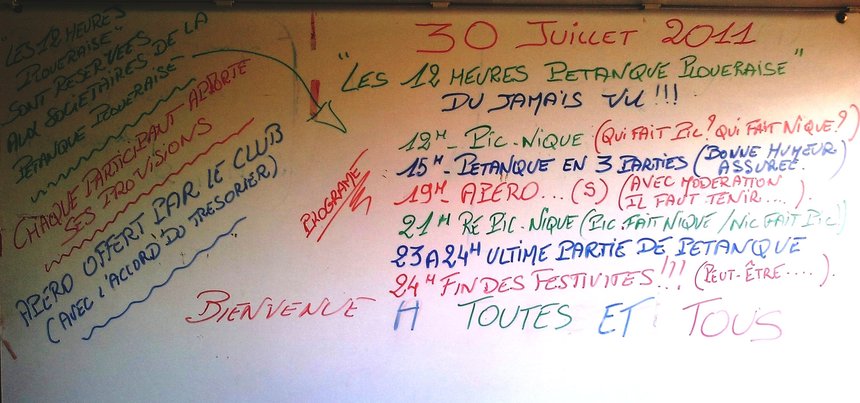 "LES 12 HEURES
PLOUERAISE"
SONT RESERVEES
AUX SOCIETAIRES DE LA
PETANQUE PLOUERAISE
CHAQUE PARTICIPANT APPORTE
SES PROVISIONS
APERO OFFERT PAR LE CLUB
(AVEC L'ACCORD DU TRESORIER)
30 JUILLET 2011
"LES 12 HEURES PETANQUE PLOUERAISE"
DU JAMAIS VU !!!
PROGRAME
12H- PIC-NIQUE (QUI FAIT PIC? QUI FAIT NIQUE?)
15H- PETANQUE EN 3 PARTIES (BONNE HUMEUR
ASSUREE.)
19H- APERO...(S) (AVEC MODERATION
IL FAUT TENIR....).
21H RE PIC-NIQUE (PIC FAIT NIQUE / NIC FAIT PIC)
23 A 24H ULTIME PARTIE DE PETANQUE
24H FIN DES FESTIVITES!!! (PEUT-ÊTRE....).
BIENVENUE A TOUTES ET TOUS